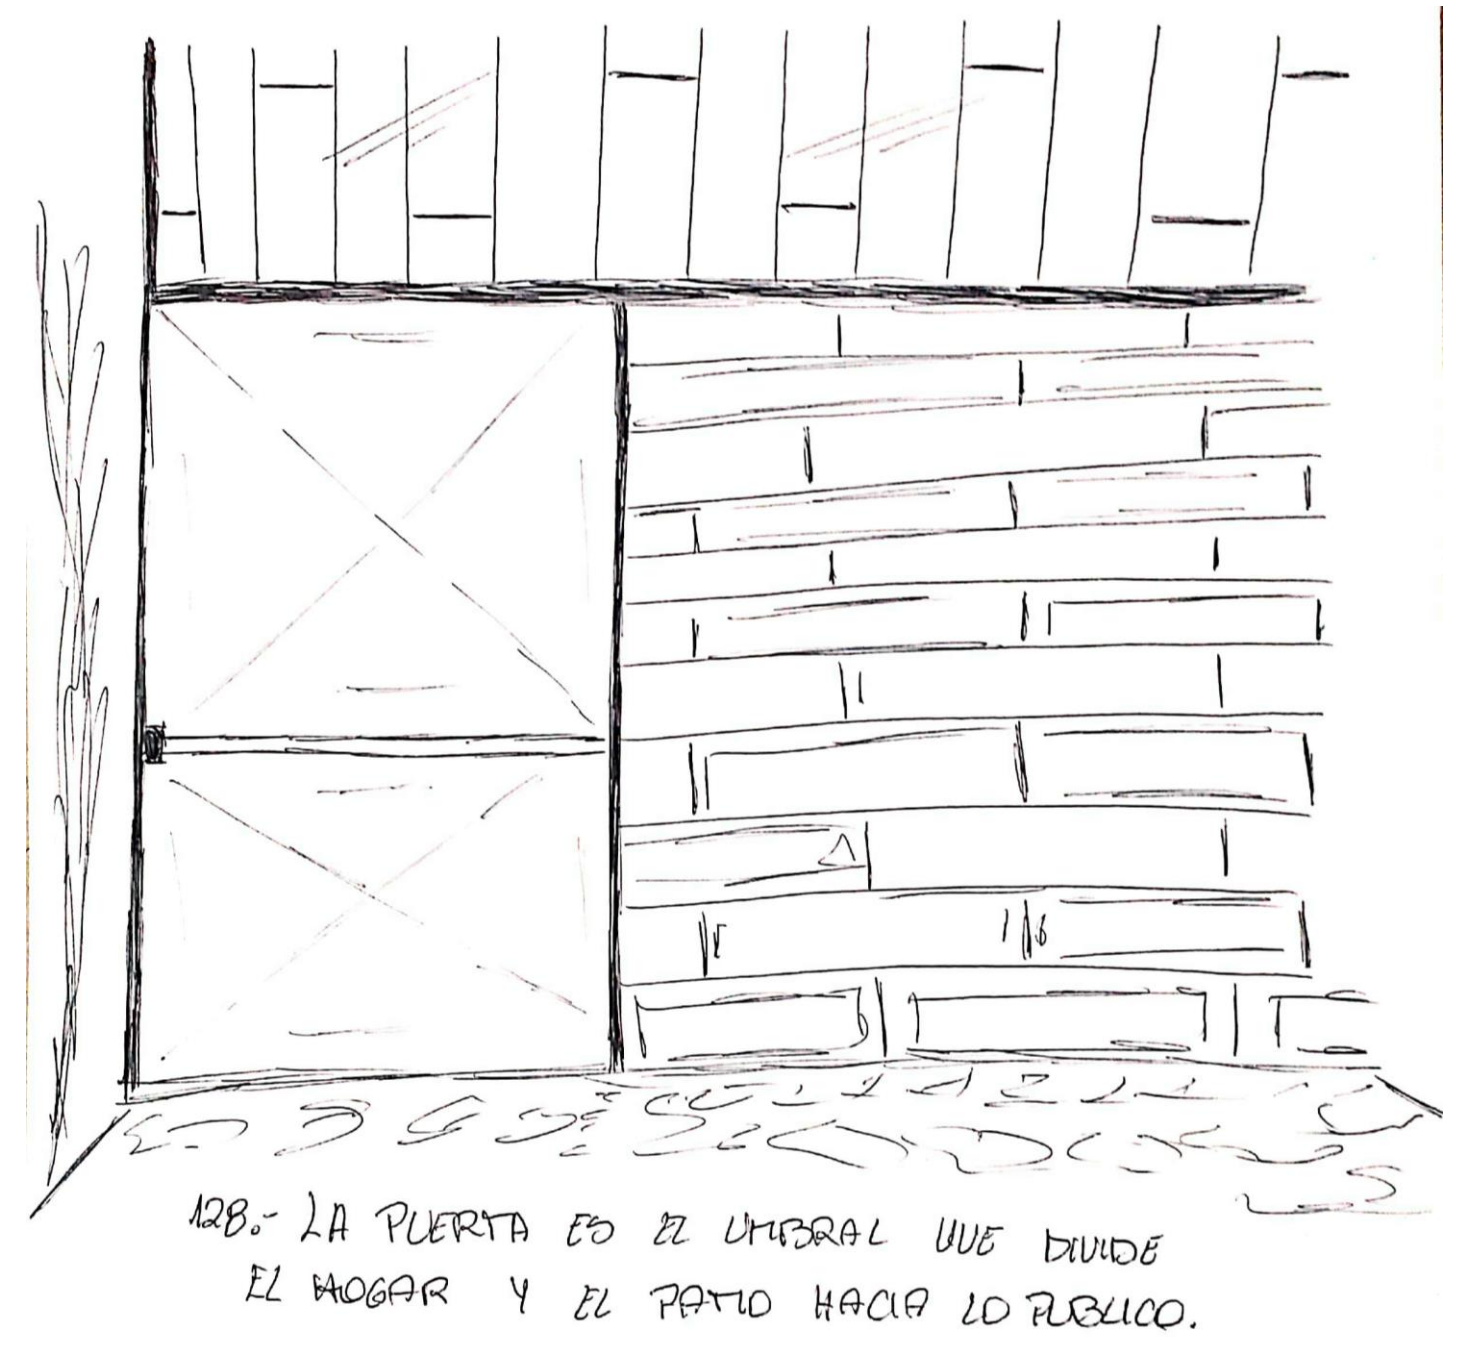 128.- LA PUERTA ES EL UMBRAL QUE DIVIDE
EL HOGAR Y EL PATIO HACIA LO PUBLICO.